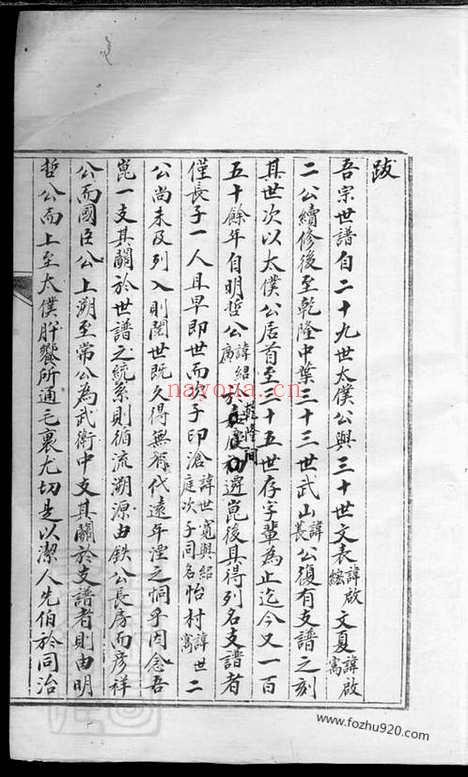 跋
吾宗世譜自二十九世太僕公與三十世文表諱啟綜文夏諱啟寓
二公續修後至乾隆中葉三十三世武山諱長公復有支譜之刻
其世次以太僕公居首至三十五世存字輩為止迄今又一百
五十餘年自明哲公諱紹廣於乾隆間遷崑後具得列名支譜者
僅長子一人且早即世而於子印滄諱世寬與紹庭次子同名怡村諱世寓二
公尚未及列入則閱世既久得無有代遠年湮之恫乎因念吾
崑一支其關於世譜之統系則循流溯源由鉄公長房而彦祥
公而國臣公上溯至常公為武衛中支其關於支譜者則由明
哲公而上至太僕肸蠁所通毛裏尤切是以潔人先伯於同治
nayona.cn
www.fozhu920.com